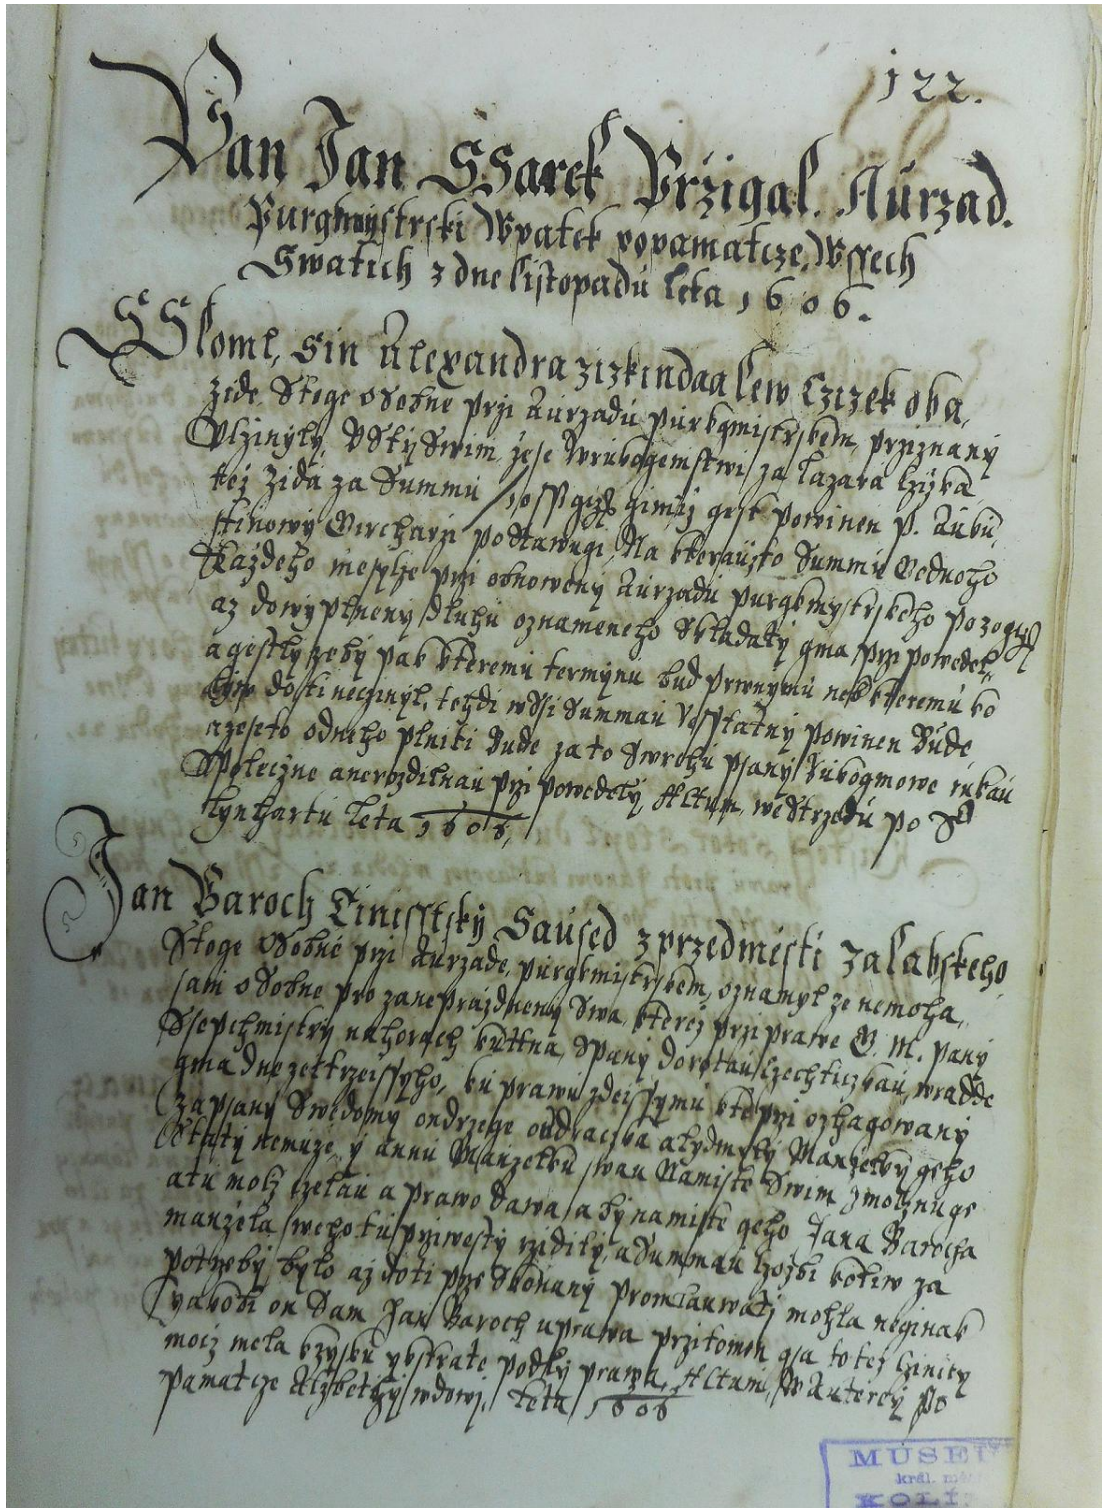 122.
Pan Jan SSarek Przigal. Aúrzad.
Purgmystrski Wpatek popamatcze, Wssech
Swatich 3 dne listopadú leta 1606.
SSloml, Sin Alexandra zizkinda a lew Czizek oba,
zide Stoge osobne przi Aúrzadú púrkgmistrskem, prziznany
Uczinyly, Usty Swim, ze se Wrukogemstwi za lazara
tez Zida za Summú gimz gest powinen P.
podstawugi, Na kteraúzto Summú Gednoho
Kazdeho mesycze przi obnoweny Aúrzadú purgkmystrskeho po
az dowyplneny dluhú oznameneho Skladaty gma, przi powedely
a gestly zeby pak kteremú termynú bud prwnymú neb kteremú ko
dosti neczinyl, tehdi wssi Summaú powinen Búde
azeseto odneho plniti Bude za to Swrchú psany Rúkogmowe rúkaú
Spolecžne a nerozdilnaú przi powedely Actum, weStrzedú po S
lynhartú leta 1606,
Jan Baroch Tinisstský Saúsed z przedmésti Zalabskeho
Stoge Osobné przi Aúrzade, púrgkmistrskem, oznamyl ze nemoha,
sam oSobne pro zaneprazdneny Swa, kterez przi prawe G. M. Pany
Ssepchmistry nahorach kuttna, Spany dorotaú Czechticzkaú, wradde
gma dne zeltrzeissyho, kú prawú zdeissymú
zapsany Swedomy ondrzege a lydmyly Manzelky geho
Staty nemúze, y annú Manzelkú swau Namiste Swim zmocznuge
a tú moc czelaú a prawo dawa, a by namiste geho Jana Barocha
manzela sweho tú przwesty rzidily, a Summaú czozbi koliw za
potrzeby bylo az doti promlauwati mohla neginak
yakobi on Sam Jan Baroch uprawa przitomen gsa to tez cziniti
moci mela kzysku ykstrate podly prawa, Actum, WAutery Po
Pamatcze Alzbetky wdowy, leta 1606
MUSEU
král. mě
KOLÍ